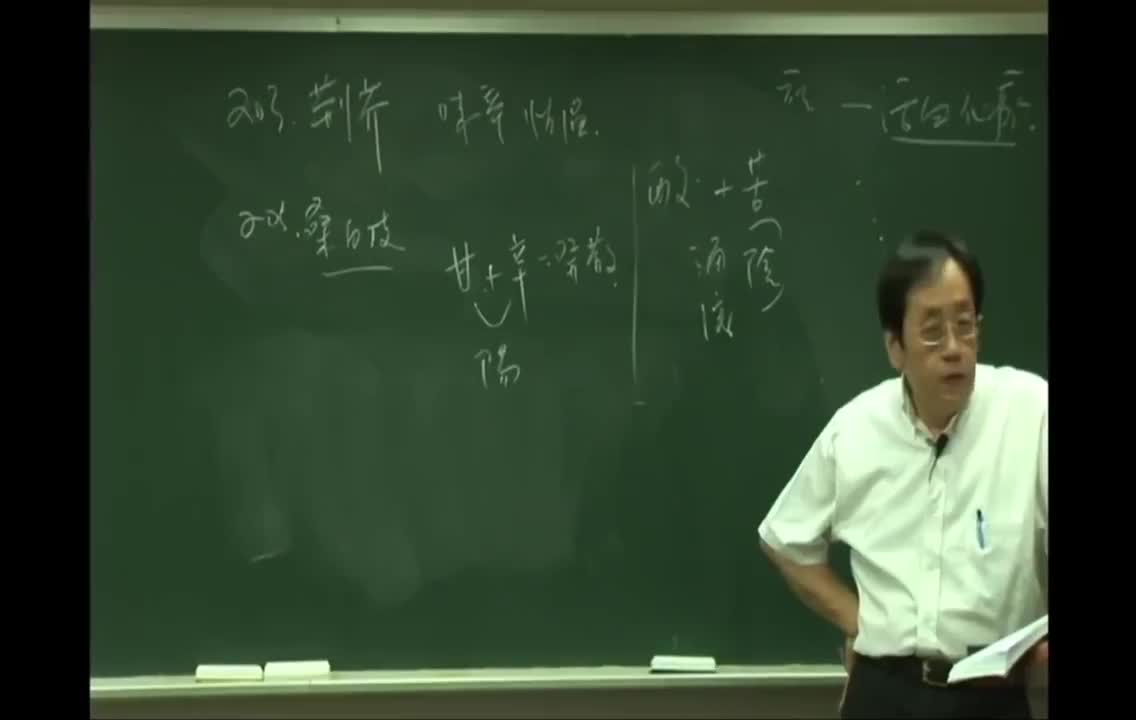 203. 荊芥 味辛 性溫.
204. 桑白皮
甘+辛=發散.
陽
酸+苦
涌
(陰)
泄
一活血化瘀.